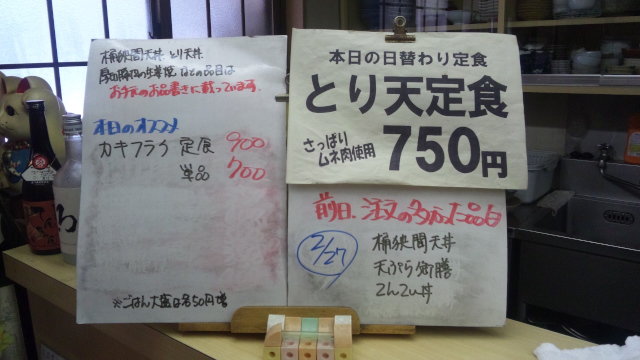 桶狭間天丼 とり天丼
豚の生姜焼 などの品目は
お手元のお品書きに載っています。
本日のオススメ
カキフライ 定食 900
単品 700
※ごはん大盛は各50円増
本日の日替わり定食
とり天定食
さっぱり
ムネ肉使用
750円
前日、注文の多かった品目
2/27
桶狭間天丼
天ぷら御膳
てんてい丼